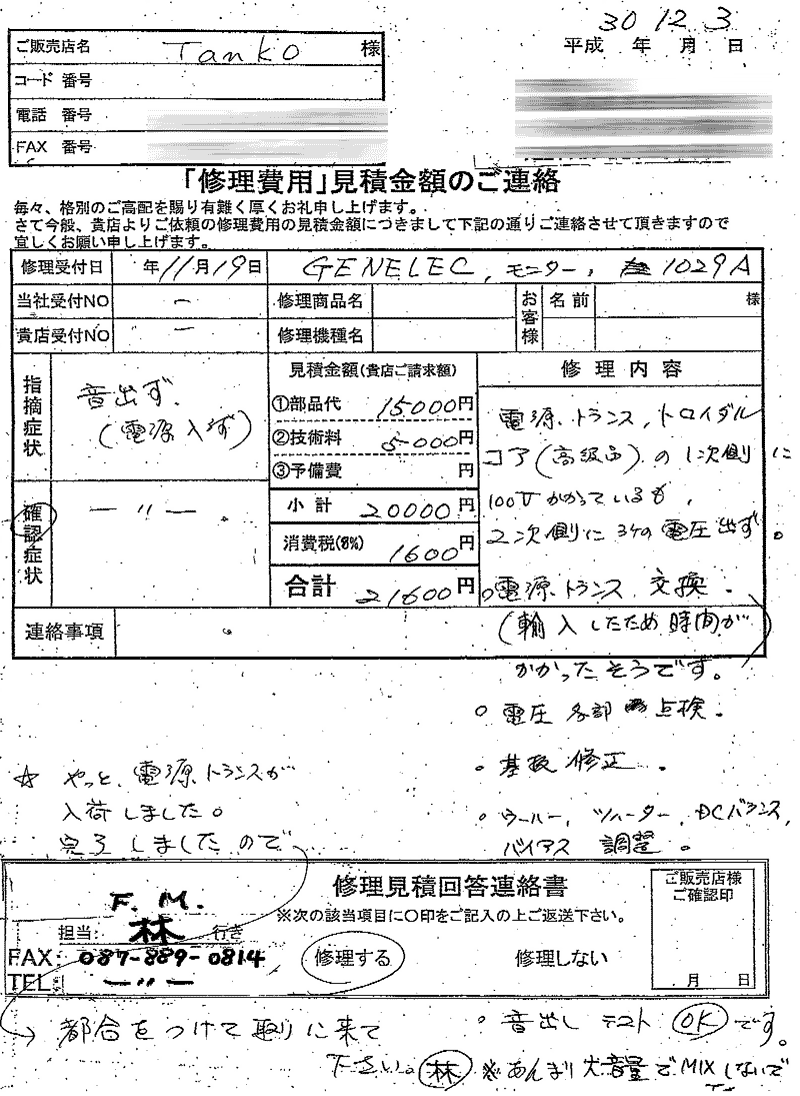 30 12 3
平成 年 月 日
ご販売店名 Tanko 様
コード 番号
電話 番号
FAX 番号
「修理費用」見積金額のご連絡
毎々、格別のご高配を賜り有難く厚くお礼申し上げます。
さて今般、貴店よりご依頼の修理費用の見積金額につきまして下記の通りご連絡させて頂きますので
宜しくお願い申し上げます。
修理受付日 年11月19日 GENELEC, モニター, 1029A
当社受付NO ー 修理商品名 お客様 名前 様
貴店受付NO ー 修理機種名
指摘症状 音出ず、
(電源入らず)
確認症状 ー〃ー 。
見積金額(貴店ご請求額)
①部品代 15000円
②技術料 5000円
③予備費 円
小計 20000円
消費税(8%) 1600円
合計 21600円
修理内容
電源、トランス、トロイダル
コア(高級品)の1次側に
100Vかかっているも、
2次側に3ケの電圧出ず。
○電源トランス交換.
(輸入したため時間が
かかったそうです。)
連絡事項
○電圧各部点検.
○基板修正.
○ウーハー, ツイーター, DCバランス,
バイアス調整。
☆ やっと、電源トランスが
入荷しました。
完了しましたので
F.M.
担当: 林 行き
FAX: 087-889-0814
TEL: ー〃ー
修理見積回答連絡書
※次の該当項目に〇印をご記入の上ご返送下さい。
修理する 修理しない
ご販売店様
ご確認印
月 日
→ 都合をつけて取りに来て
下さい。林
○音出しテストOKです。
※あんまり大音量でMIXしないで